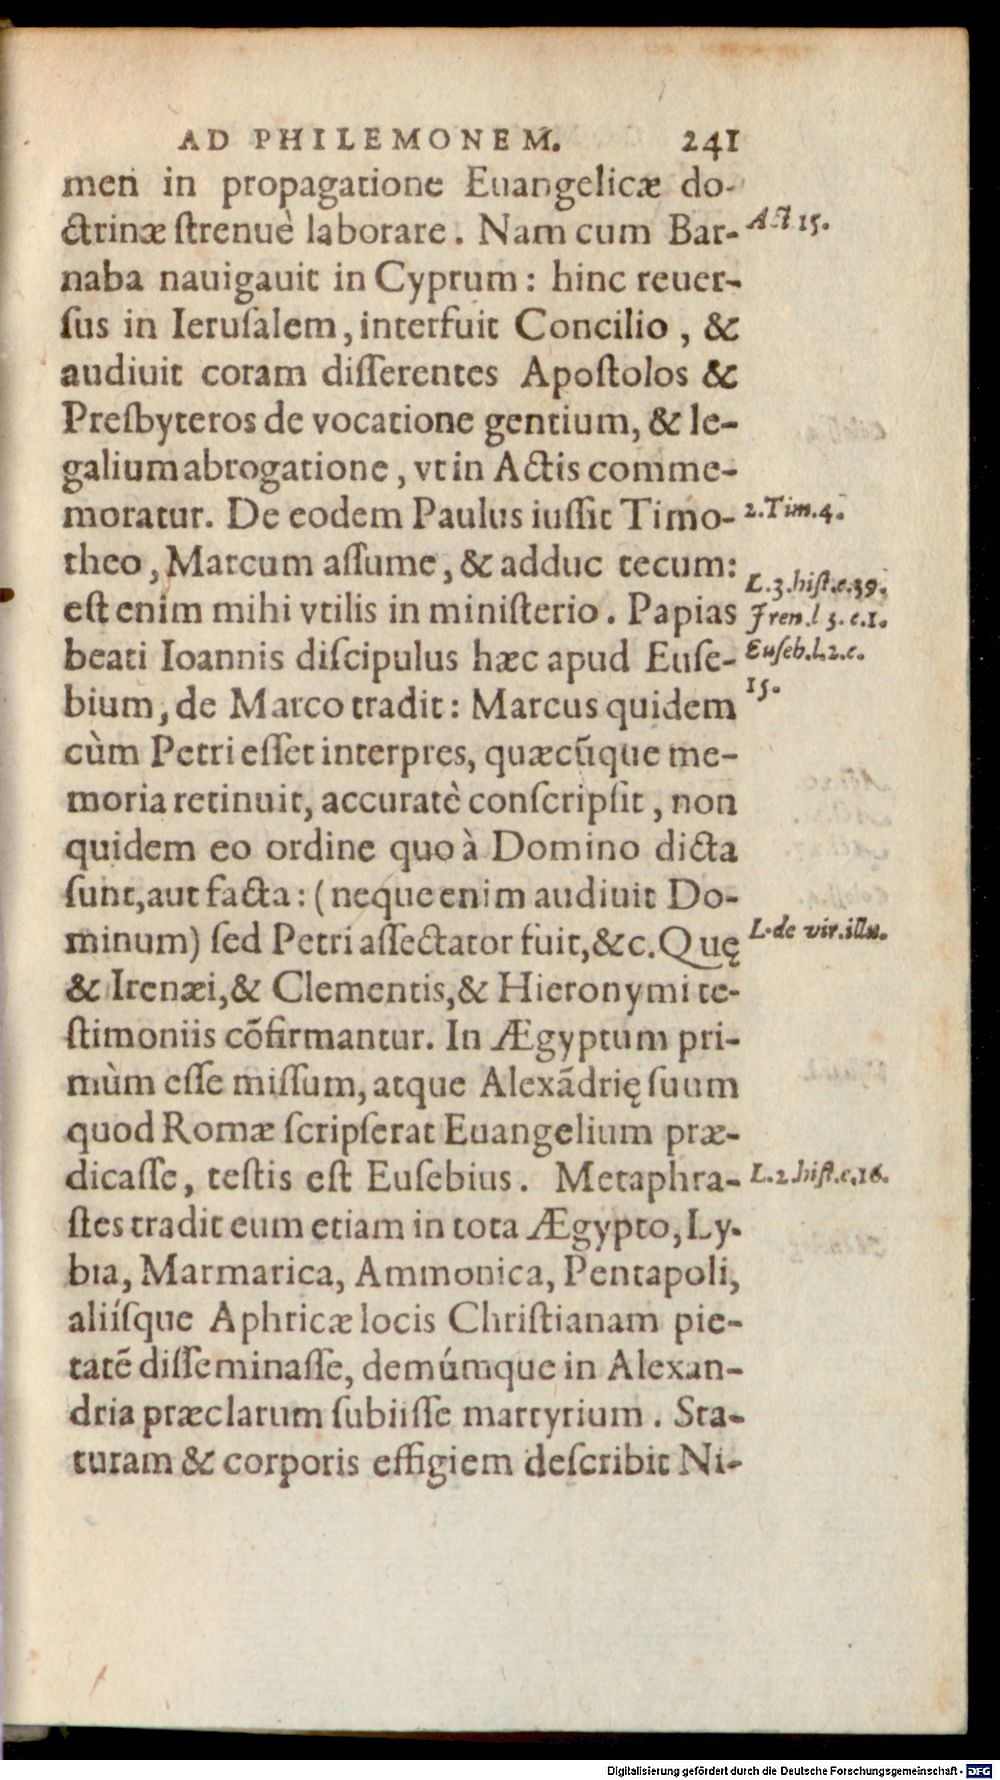 AD PHILEMONEM. 241
men in propagatione Euangelicæ do-
ctrinæ ſtrenuè laborare. Nam cum Bar-
Act 15.
naba nauigauit in Cyprum: hinc reuer-
ſus in Ieruſalem, interfuit Concilio, &
audiuit coram diſſerentes Apoſtolos &
Preſbyteros de vocatione gentium, & le-
galium abrogatione, vt in Actis comme-
moratur. De eodem Paulus iuſſit Timo-
2.Tim.4.
theo, Marcum aſſume, & adduc tecum:
L.3.hiſt.c.39.
eſt enim mihi vtilis in miniſterio. Papias
Iren.l 3.c.1.
beati Ioannis diſcipulus hæc apud Euſe-
Euſeb.l.2.c.
15.
bium, de Marco tradit: Marcus quidem
cùm Petri eſſet interpres, quæcũque me-
moria retinuit, accuratè conſcripſit, non
quidem eo ordine quo à Domino dicta
ſunt, aut facta: (neque enim audiuit Do-
minum) ſed Petri aſſectator fuit, &c. Quę
L.de vir.illu.
& Irenæi, & Clementis, & Hieronymi te-
ſtimoniis cõfirmantur. In Ægyptum pri-
mùm eſſe miſſum, atque Alexãdrię ſuum
quod Romæ ſcripſerat Euangelium præ-
dicaſſe, teſtis eſt Euſebius. Metaphra-
L.2.hiſt.c.16.
ſtes tradit eum etiam in tota Ægypto, Ly-
bia, Marmarica, Ammonica, Pentapoli,
aliíſque Aphricæ locis Chriſtianam pie-
tatẽ diſſeminaſſe, demúmque in Alexan-
dria præclarum ſubiiſſe martyrium. Sta-
turam & corporis effigiem deſcribit Ni-
Digitalisierung gefördert durch die Deutsche Forschungsgemeinschaft - DFG